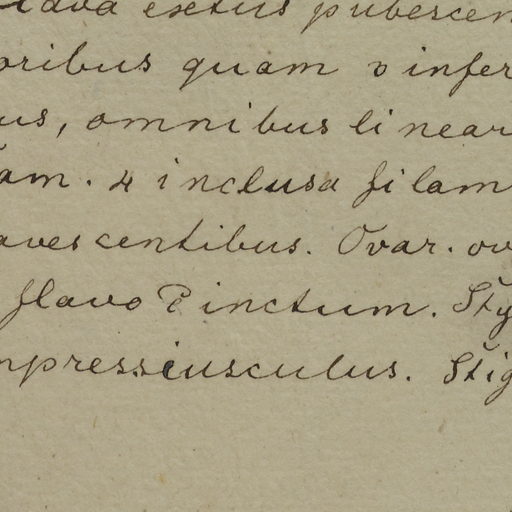 extus pubescen
oribus quam v infer
us, omnibus linear
am. 4 inclusa filam
avescentibus. Ovar. ov
flavo Pinctum. Sty
mpressiusculus. Stig